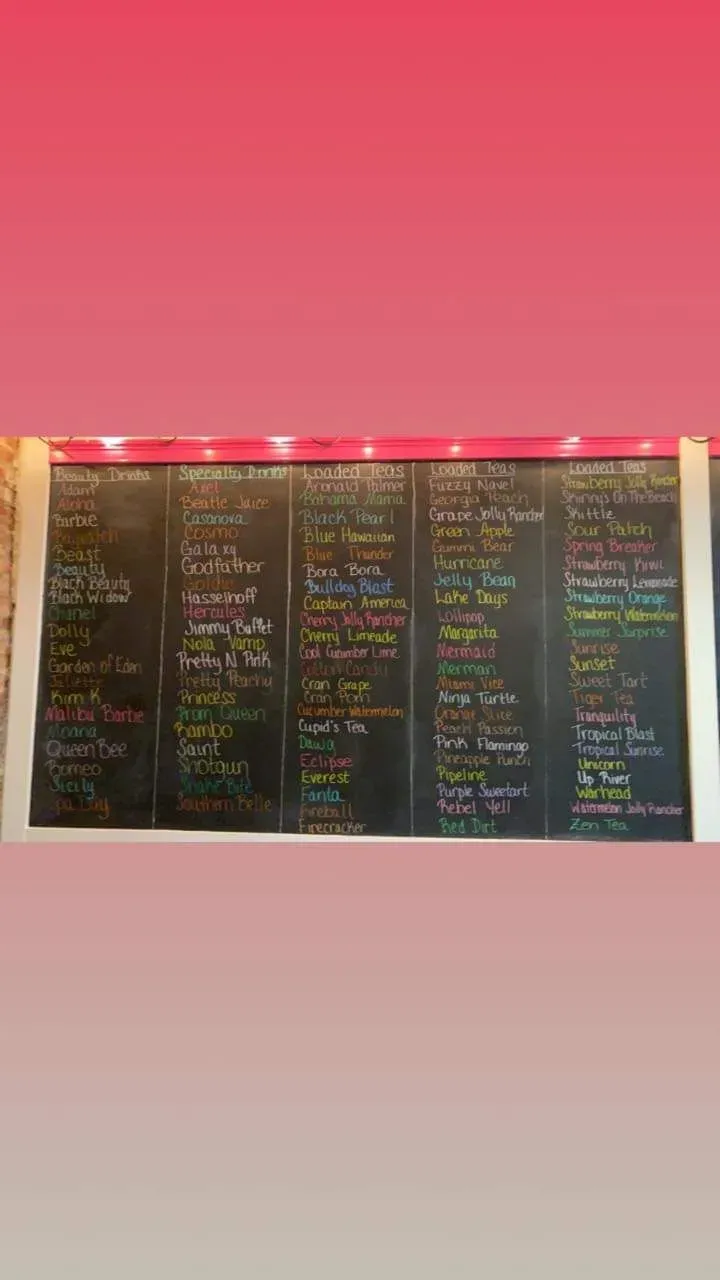 Beauty Drinks
Adam
Aloha
Barbie
Baywatch
Beast
Beauty
Black Beauty
Black Widow
Chanel
Dolly
Eve
Garden of Eden
Juliette
Kim K
Malibu Barbie
Moana
Queen Bee
Romeo
Sicily
Spa Day
Specialty Drinks
Axel
Beatle Juice
Casanova
Cosmo
Galaxy
Godfather
Goldie
Hasselhoff
Hercules
Jimmy Buffet
Nola Vamp
Pretty N Pink
Pretty Peachy
Princess
Prom Queen
Rambo
Saint
Shotgun
Snake Bite
Southern Belle
Loaded Teas
Aronald Palmer
Bahama Mama
Black Pearl
Blue Hawaiian
Blue Thunder
Bora Bora
Bulldog Blast
Captain America
Cherry Jolly Rancher
Cherry Limeade
Cool Cucumber Lime
Cotton Candy
Cran Grape
Cran Pom
Cucumber Watermelon
Cupid's Tea
Dawg
Eclipse
Everest
Fanta
Fireball
Firecracker
Loaded Teas
Fuzzy Navel
Georgia Peach
Grape Jolly Rancher
Green Apple
Gummi Bear
Hurricane
Jelly Bean
Lake Days
Lollipop
Margarita
Mermaid
Merman
Miami Vice
Ninja Turtle
Orange Slice
Peach Passion
Pink Flamingo
Pineapple Punch
Pipeline
Purple Sweetart
Rebel Yell
Red Dirt
Loaded Teas
Strawberry Jolly Rancher
Skinny's On The Beach
Skittle
Sour Patch
Spring Breaker
Strawberry Kiwi
Strawberry Lemonade
Strawberry Orange
Strawberry Watermelon
Summer Surprise
Sunrise
Sunset
Sweet Tart
Tiger Tea
Tranquility
Tropical Blast
Tropical Sunrise
Unicorn
Up River
Warhead
Watermelon Jolly Rancher
Zen Tea